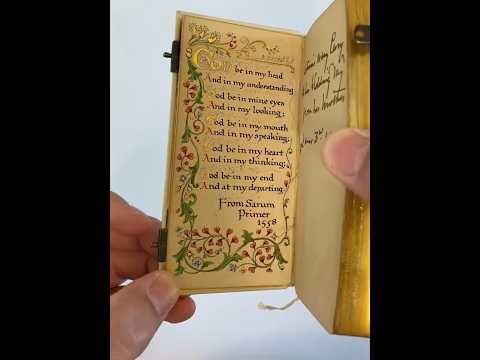 God be in my head
And in my understanding
God be in mine eyes
And in my looking;
God be in my mouth
And in my speaking;
God be in my heart
And in my thinking;
God be in my end
And at my departing.
From Sarum
Primer
1558
Wedding Day
from her Mother